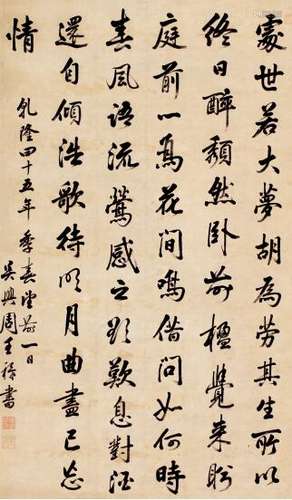 處世若大夢胡為勞其生所以
終日醉頹然卧前楹覺來盼
庭前一鳥花間鳴借問如何時
春風語流鶯感之欲歎息對酒
還自傾浩歌待明月曲盡已忘
情
乾隆四十五年季春望前一日
吳興周書